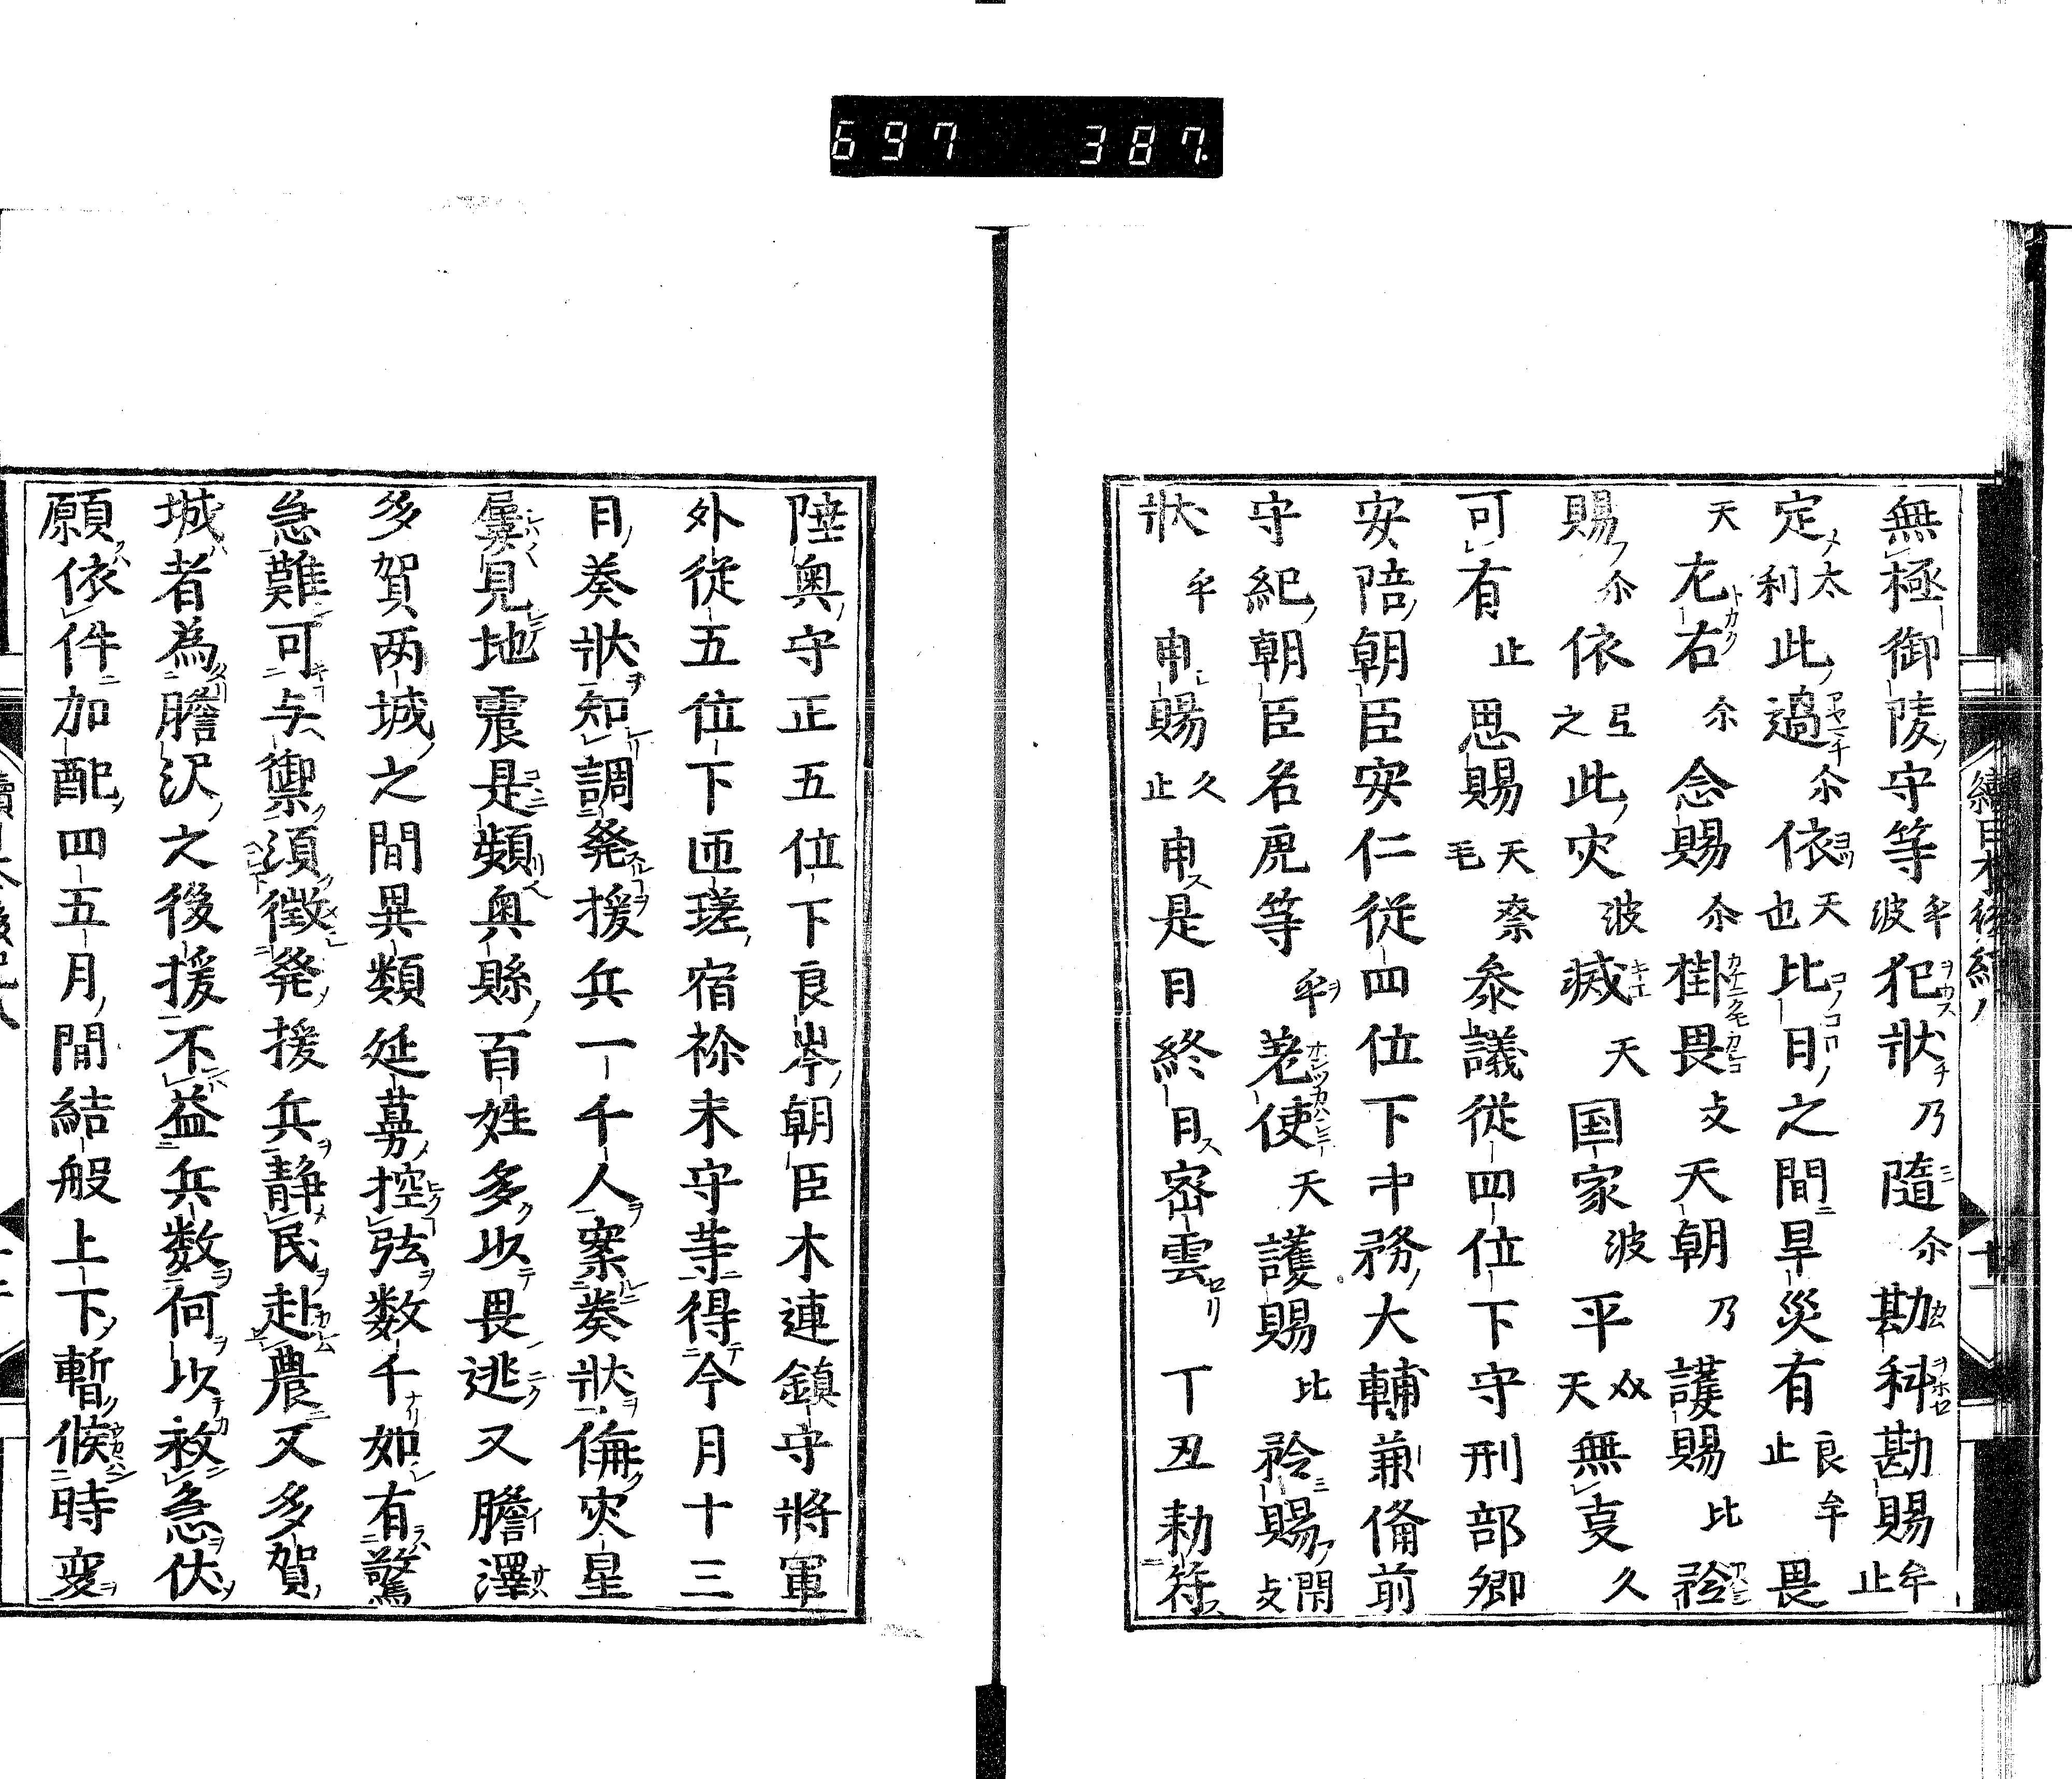 697 387
無極御陵守等乎波犯狀乃隨尓勘科勘賜牟止
定太利此過尓依天也比日之間旱災有良牟止畏
天尢右尓念賜尓掛畏攴天朝乃護賜比矜
賜尓依弖之此灾波滅天国家波平㕛天無㕝久
可有止思賜天毛奈叅議従四位下守刑部卿
安陪朝臣安仁従四位下中務大輔兼備前
守紀朝臣名虎等乎差使天護賜比矜賜閇攴
狀乎申賜久止申是日終日密雲丁丑勅符
陸奥守正五位下良岑朝臣木連鎮守將軍
外従五位下匝瑳宿祢末守等得今月十三
日奏狀知調発援兵一千人案奏狀偁灾星
屢見地震是頻奥縣百姓多以畏逃又膽澤
多賀两城之間異類延蔓控弦数千如有驚
急難可与禦須徵発援兵静民赴農又多賀
城者為膽沢之後援不益兵数何以救急伏
願依件加配四五月間結般上下暫候時変